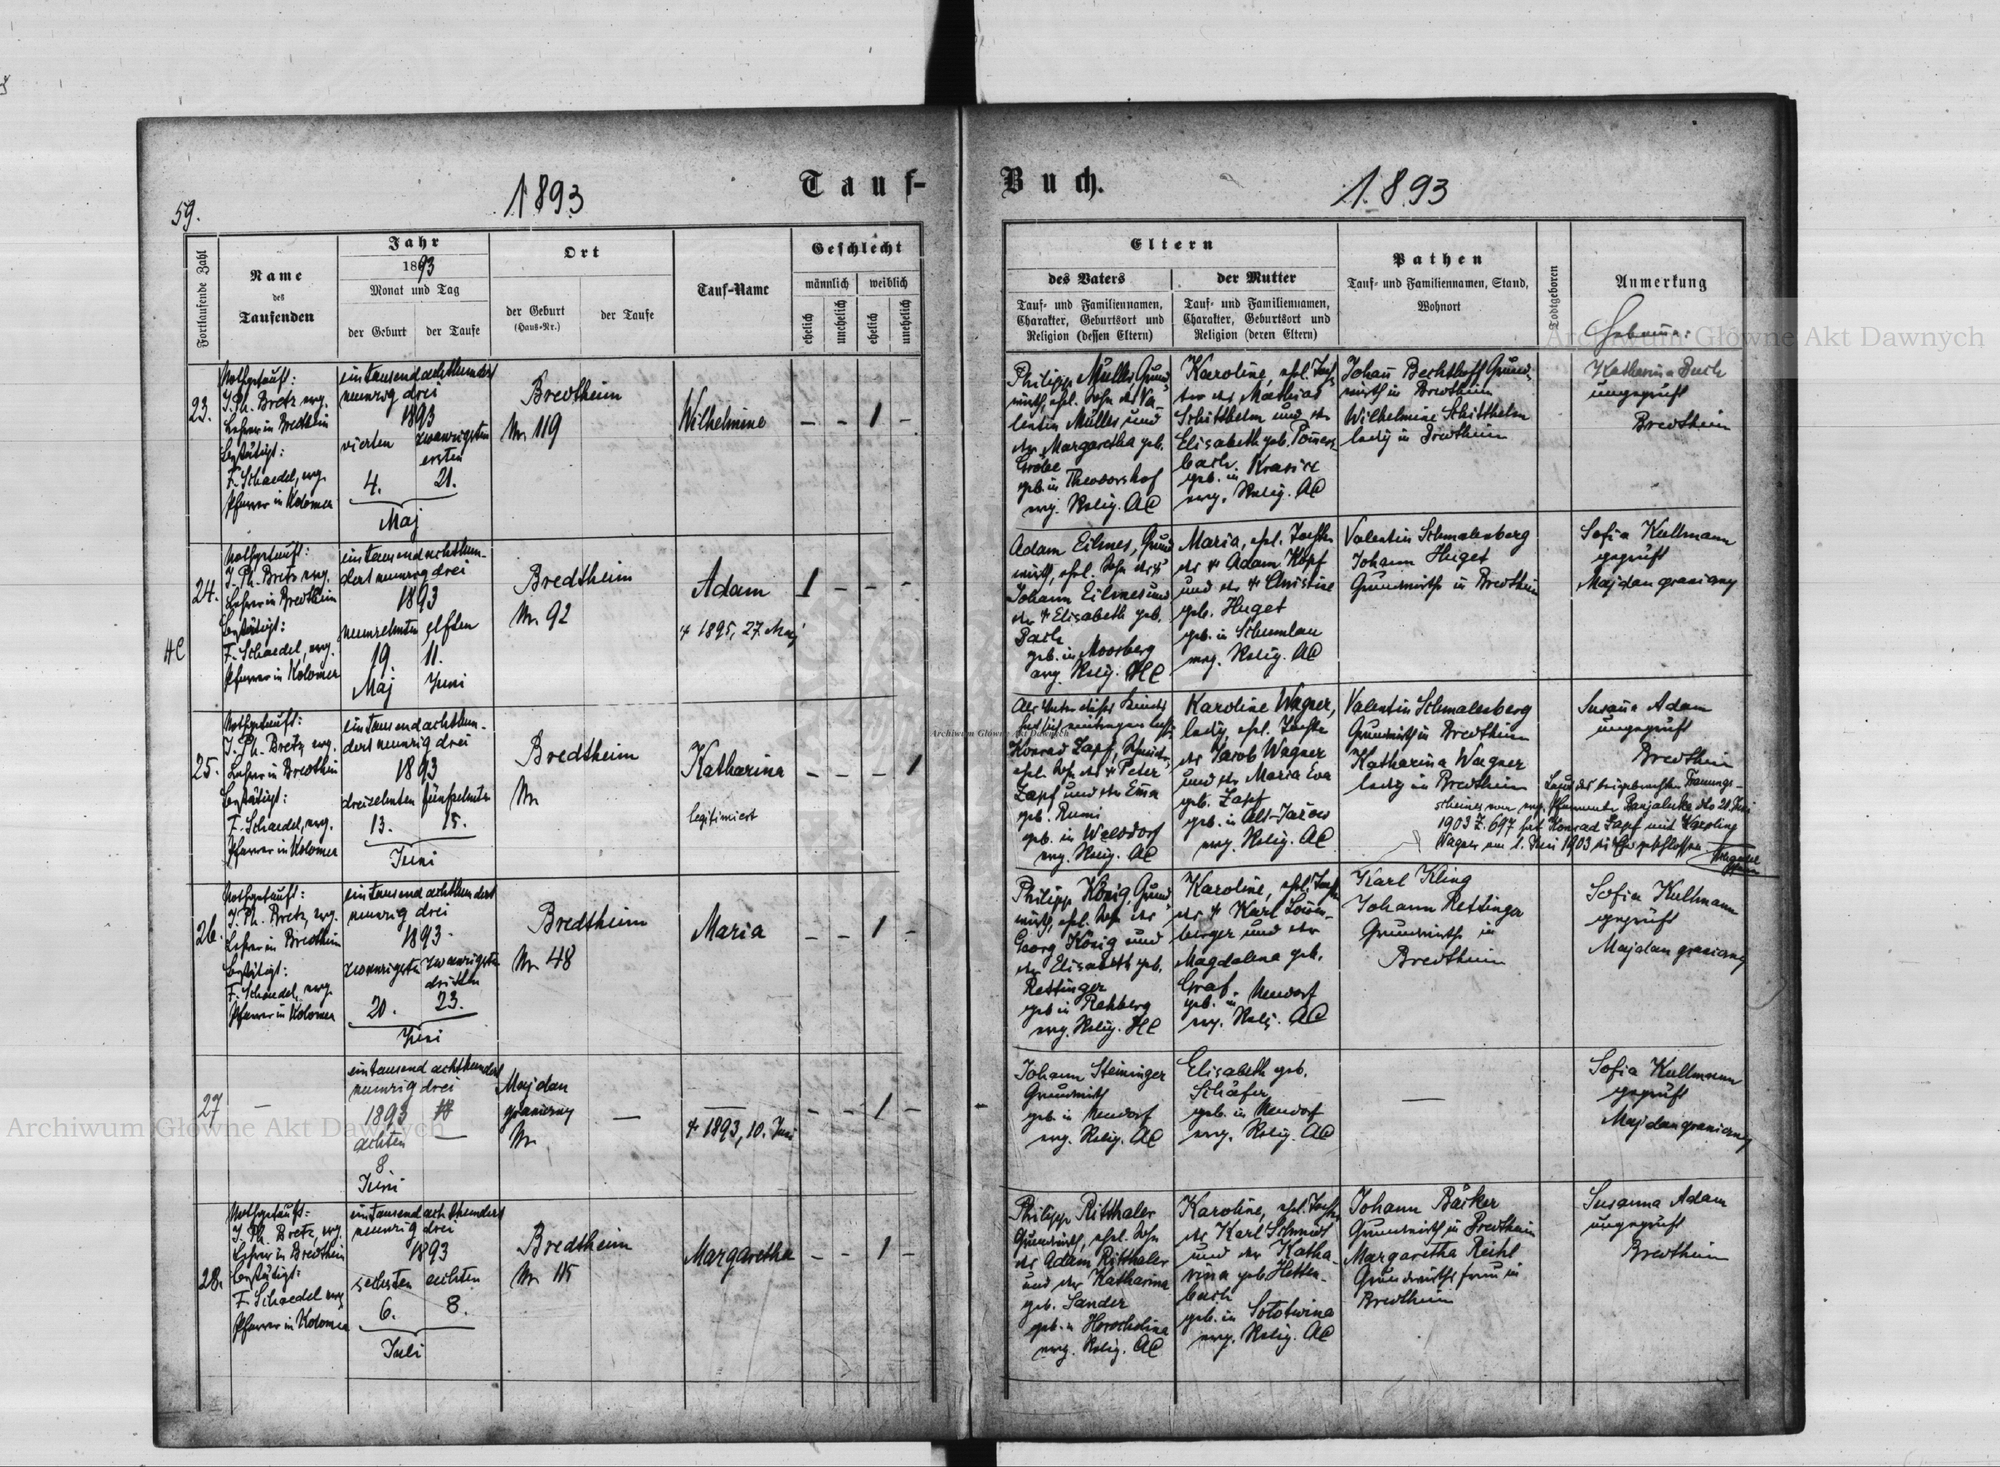 59.
1893
Tauf-
Buch.
1893
Fortlaufende Zahl
Name
des
Taufenden
Jahr
1893
Monat und Tag
der Geburt
der Taufe
Ort
der Geburt
(Haus-Nr.)
der Taufe
Tauf-Name
Geschlecht
männlich
weiblich
ehelich
unehelich
ehelich
unehelich
Eltern
des Vaters
Tauf- und Familiennamen,
Charakter, Geburtsort und
Religion (dessen Eltern)
der Mutter
Tauf- und Familiennamen,
Charakter, Geburtsort und
Religion (deren Eltern)
Pathen
Tauf- und Familiennamen, Stand,
Wohnort
Todtgeboren
Anmerkung
Hebamme:
23.
Nothgetauft:
J. Ph. Bretz evg.
Lehrer in Bredtheim
bestätigt:
F. Schaedel, evg.
Pfarrer in Kolomea
eintausendachthundert
neunzig drei
1893
vierten
zwanzigsten
ersten
4.
21.
Maj
Bredtheim
Nr 119
Wilhelmine
– – 1 –
Philipp Müller, Grund-
wirth, ehel. Sohn des Va-
lentin Müller und
der Margaretha geb.
geb. in Theodorshof
evg. Relig. AC
Karoline, ehel. Toch-
ter des Mathias
Schitthelm und der
Elisabeth geb.
geb. in
evg. Relig. AC
Johann Bechtloff Grund-
wirth in Bredtheim
Wilhelmine Schitthelm
ledig in Bredtheim
Katharina Buch
ungeprüft
Bredtheim
24.
HC
Nothgetauft:
J. Ph. Bretz evg.
Lehrer in Bredtheim
bestätigt:
F. Schaedel, evg.
Pfarrer in Kolomea
eintausendachthun-
dert neunzig drei
1893
neunzehnten
elften
19
11.
Maj
Juni
Bredtheim
Nr 92
Adam
+ 1895, 27. Maj
1 – – –
Adam Eilmes, Grund-
wirth, ehel. Sohn des +
Johann Eilmes und
der + Elisabeth geb.
Bach
geb. in Moosberg
evg. Relig. HC
Maria, ehel. Tochter
des + Adam Kopf
und der + Christine
geb. Huget
geb. in Schumlau
evg. Relig. AC
Valentin Schmalenberg
Johann Huget
Grundwirthe in Bredtheim
Sofia Kullmann
geprüft
Majdan graniczny
25.
Nothgetauft:
J. Ph. Bretz, evg.
Lehrer in Bredtheim
bestätigt:
F. Schaedel, evg.
Pfarrer in Kolomea
eintausendachthun-
dert neunzig drei
1893
dreizehnten
fünfzehnten
13.
15.
Juni
Bredtheim
Nr
Katharina
legitimiert
– – – 1
Als Vater dieses Kindes
hat sich eintragen lassen
Konrad Zapf,
ehel. Sohn des + Peter
Zapf und der Eva
geb. Rumi
geb. in Welsdorf
evg. Relig. AC
Karoline Wagner,
ledig, ehel. Tochter
des Jacob Wagner
und der Maria Eva
geb. Zapf
geb. in Alt-Jazow
evg. Relig. AC
Valentin Schmalenberg
Grundwirth in Bredtheim
Katharina Wagner
ledig in Bredtheim
Susanna Adam
ungeprüft
Bredtheim
Laut des beigebrachten Trauungs-
scheines vom evg. Pfarramte Banjaluka dto 21 Juni
1903 Z. 697 hat Konrad Zapf mit Karoline
Wagner am 1. Juni 1903 die Ehe geschlossen
26.
Nothgetauft:
J. Ph. Bretz, evg.
Lehrer in Bredtheim
bestätigt:
F. Schaedel, evg.
Pfarrer in Kolomea
eintausendachthundert
neunzig drei
1893
zwanzigsten
zwanzigsten
dritten
20.
23.
Juni
Bredtheim
Nr 48
Maria
– – 1 –
Philipp König, Grund-
wirth, ehel. Sohn des
Georg König und
der Elisabeth geb.
Rettinger
geb. in Rehberg
evg. Relig. HC
Karoline, ehel. Tochter
des + Karl Löwen-
berger und der
Magdalena geb.
Graf.
geb. in Neudorf
evg. Relig. AC
Karl Kling
Johann Rettinger
Grundwirthe in
Bredtheim
Sofia Kullmann
geprüft
Majdan graniczny
27
–
eintausendachthundert
neunzig drei
1893
achten
–
8
Juni
Majdan
graniczny
Nr
–
–
+ 1893, 10. Juni
– – 1 –
Johann Steininger
Grundwirth
geb. in Neudorf
evg. Relig. AC
Elisabeth geb.
Schäfer
geb. in Neudorf
evg. Relig. AC
–
Sofia Kullmann
geprüft
Majdan graniczny
28.
Nothgetauft:
J. Ph. Bretz, evg.
Lehrer in Bredtheim
bestätigt:
F. Schaedel evg.
Pfarrer in Kolomea
eintausendachthundert
neunzig drei
1893
sechsten
achten
6.
8.
Juli
Bredtheim
Nr 115
Margaretha
– – 1 –
Philipp Ritthaler
Grundwirth, ehel. Sohn
des Adam Ritthaler
und der Katharina
geb. Sander
geb. in Horocholina
evg. Relig. AC
Karoline, ehel. Tochter
des Karl Schmidt
und der Katha-
rina geb. Hetten-
bach
geb. in Sototwina
evg. Relig. AC
Johann Bäcker
Grundwirth in Bredtheim
Margaretha Reihl
Grundwirths frau in
Bredtheim
Susanna Adam
ungeprüft
Bredtheim
Archiwum Główne Akt Dawnych
Archiwum Główne Akt Dawnych
Archiwum Główne Akt Dawnych